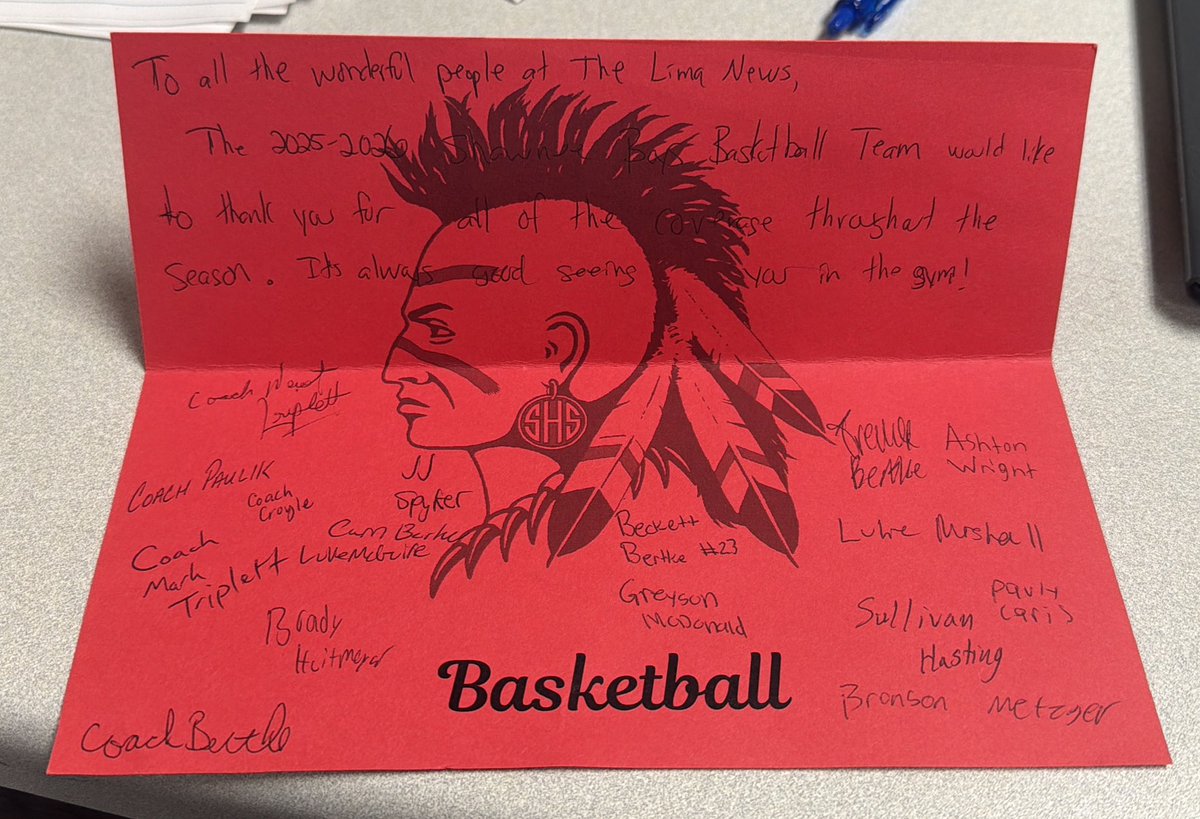 To all the wonderful people at The Lima News,
The 2025-2026 Shawnee Boys Basketball Team would like
to thank you for all of the coverage throughout the
season. It's always good seeing you in the gym!
Coach
Triplett
COACH PAULIK
Coach
Croyle
JJ
Spyker
Cam Bertke
Luke McGuire
Coach
Mark
Triplett
Brady
Huitmeyer
Coach Bertke
SHS
Beckett
Bertke #23
Greyson
McDonald
Basketball
Bertke
Ashton
Wright
Luke Mrshall
Pauly
Caris
Sullivan
Hasting
Bronson Metzger